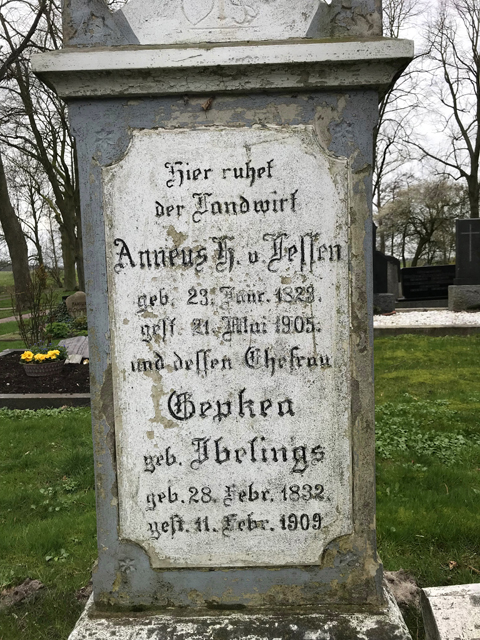 Hier ruhet
der Landwirt
Anneus H. v. Jessen
geb. 23. Janr. 1828.
gest. 21. Mai 1905.
und dessen Ehefrau
Gepkea
geb. Ibelings
geb. 28. Febr. 1832.
gest. 11. Febr. 1909.